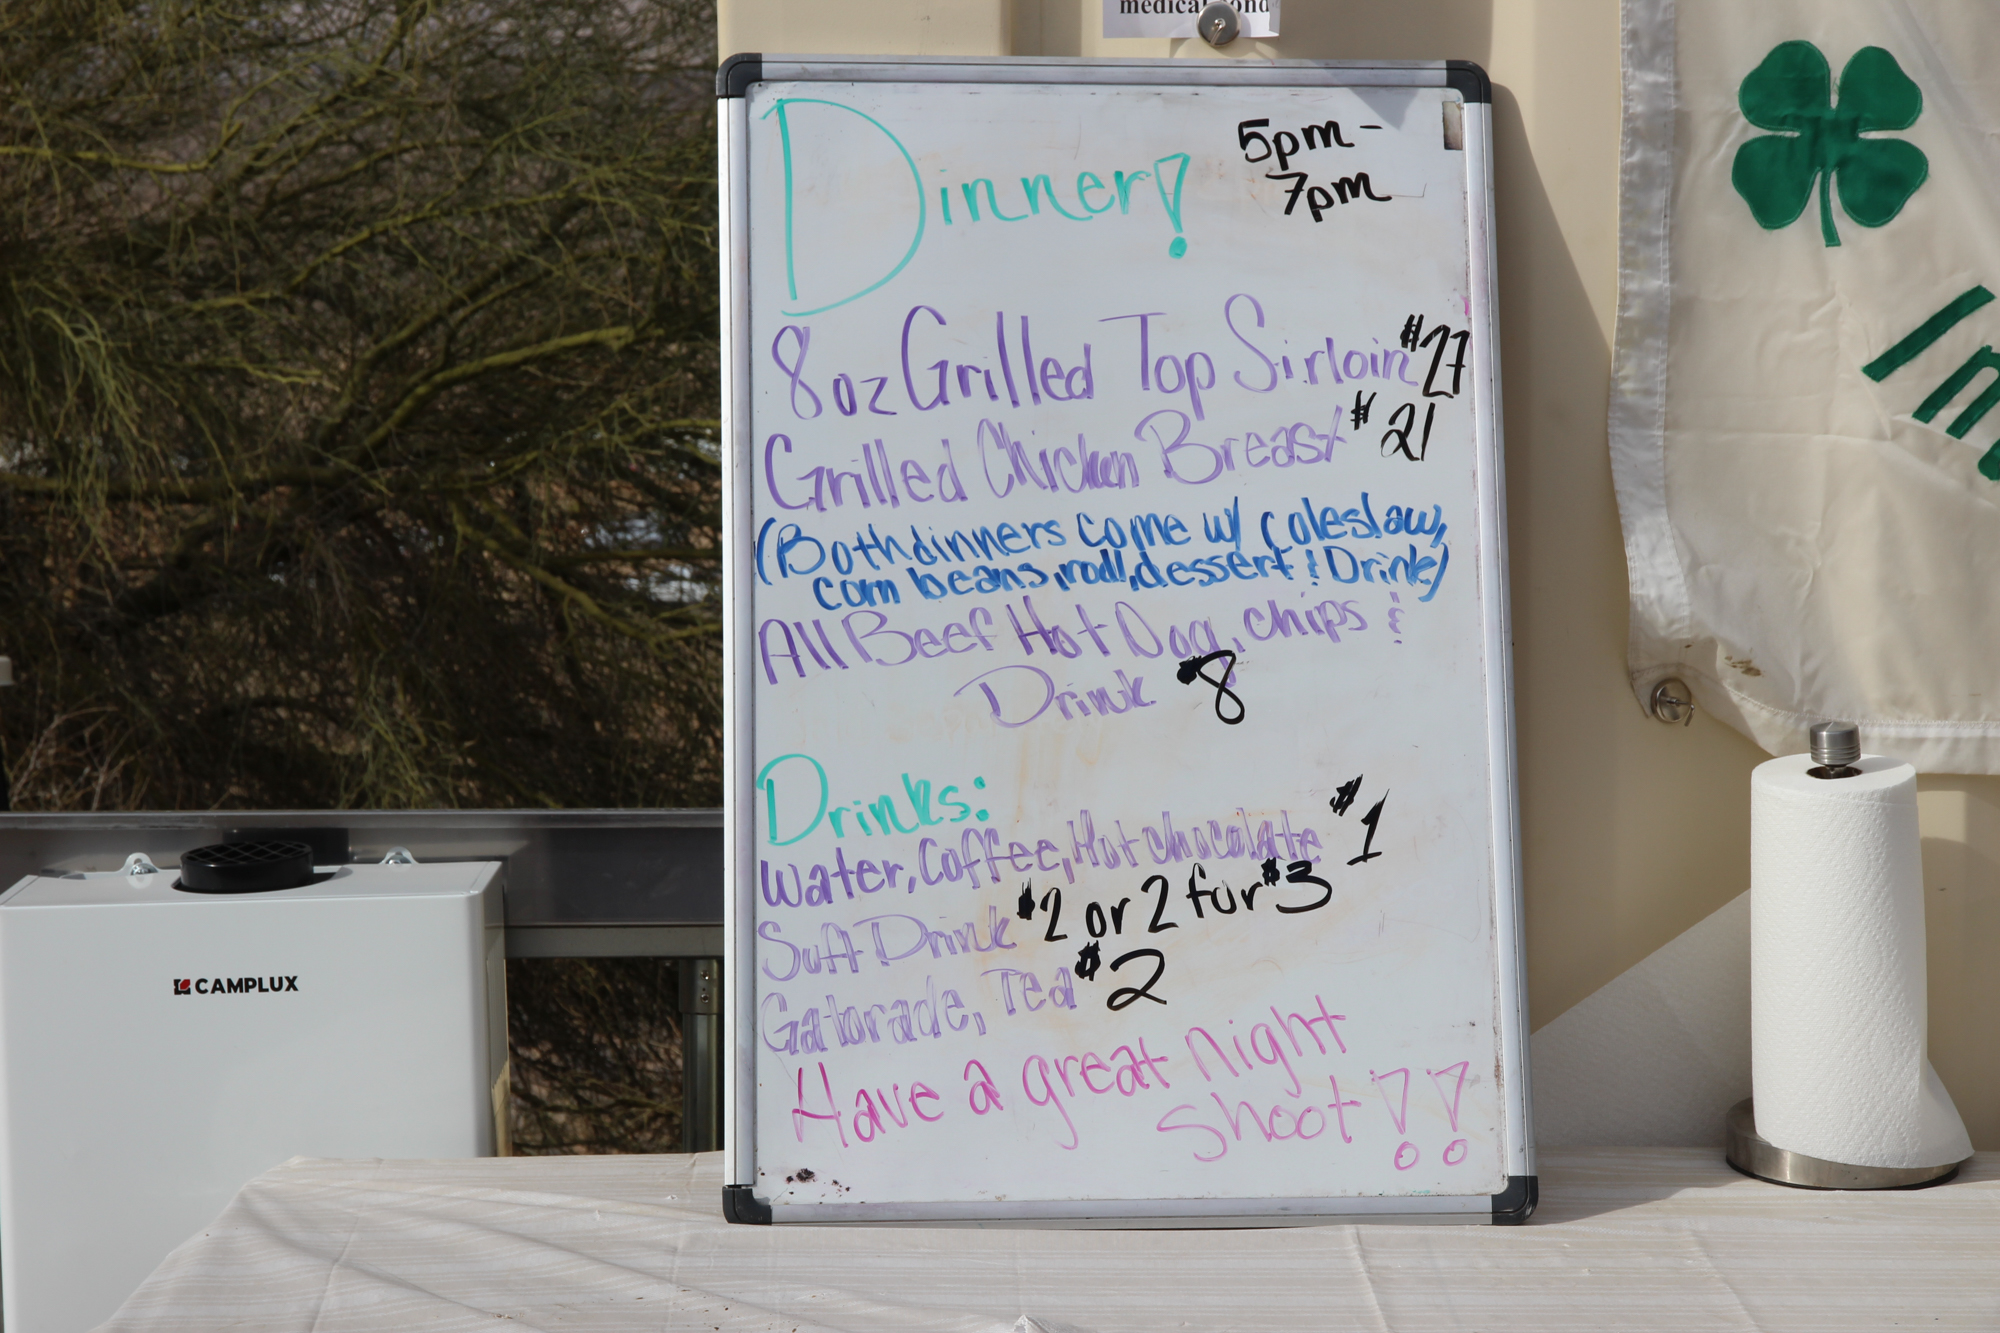 medical cond
Dinner! 5pm-
7pm
8oz Grilled Top Sirloin $27
Grilled Chicken Breast $21
(Both dinners come w/ coleslaw,
corn beans, roll, dessert & Drink)
All Beef Hot Dog, chips &
Drink $8
Drinks:
Water, Coffee, Hot chocolate $1
Soft Drink $2 or 2 for $3
Gatorade, Tea $2
Have a great night
shoot!!
CAMPLUX